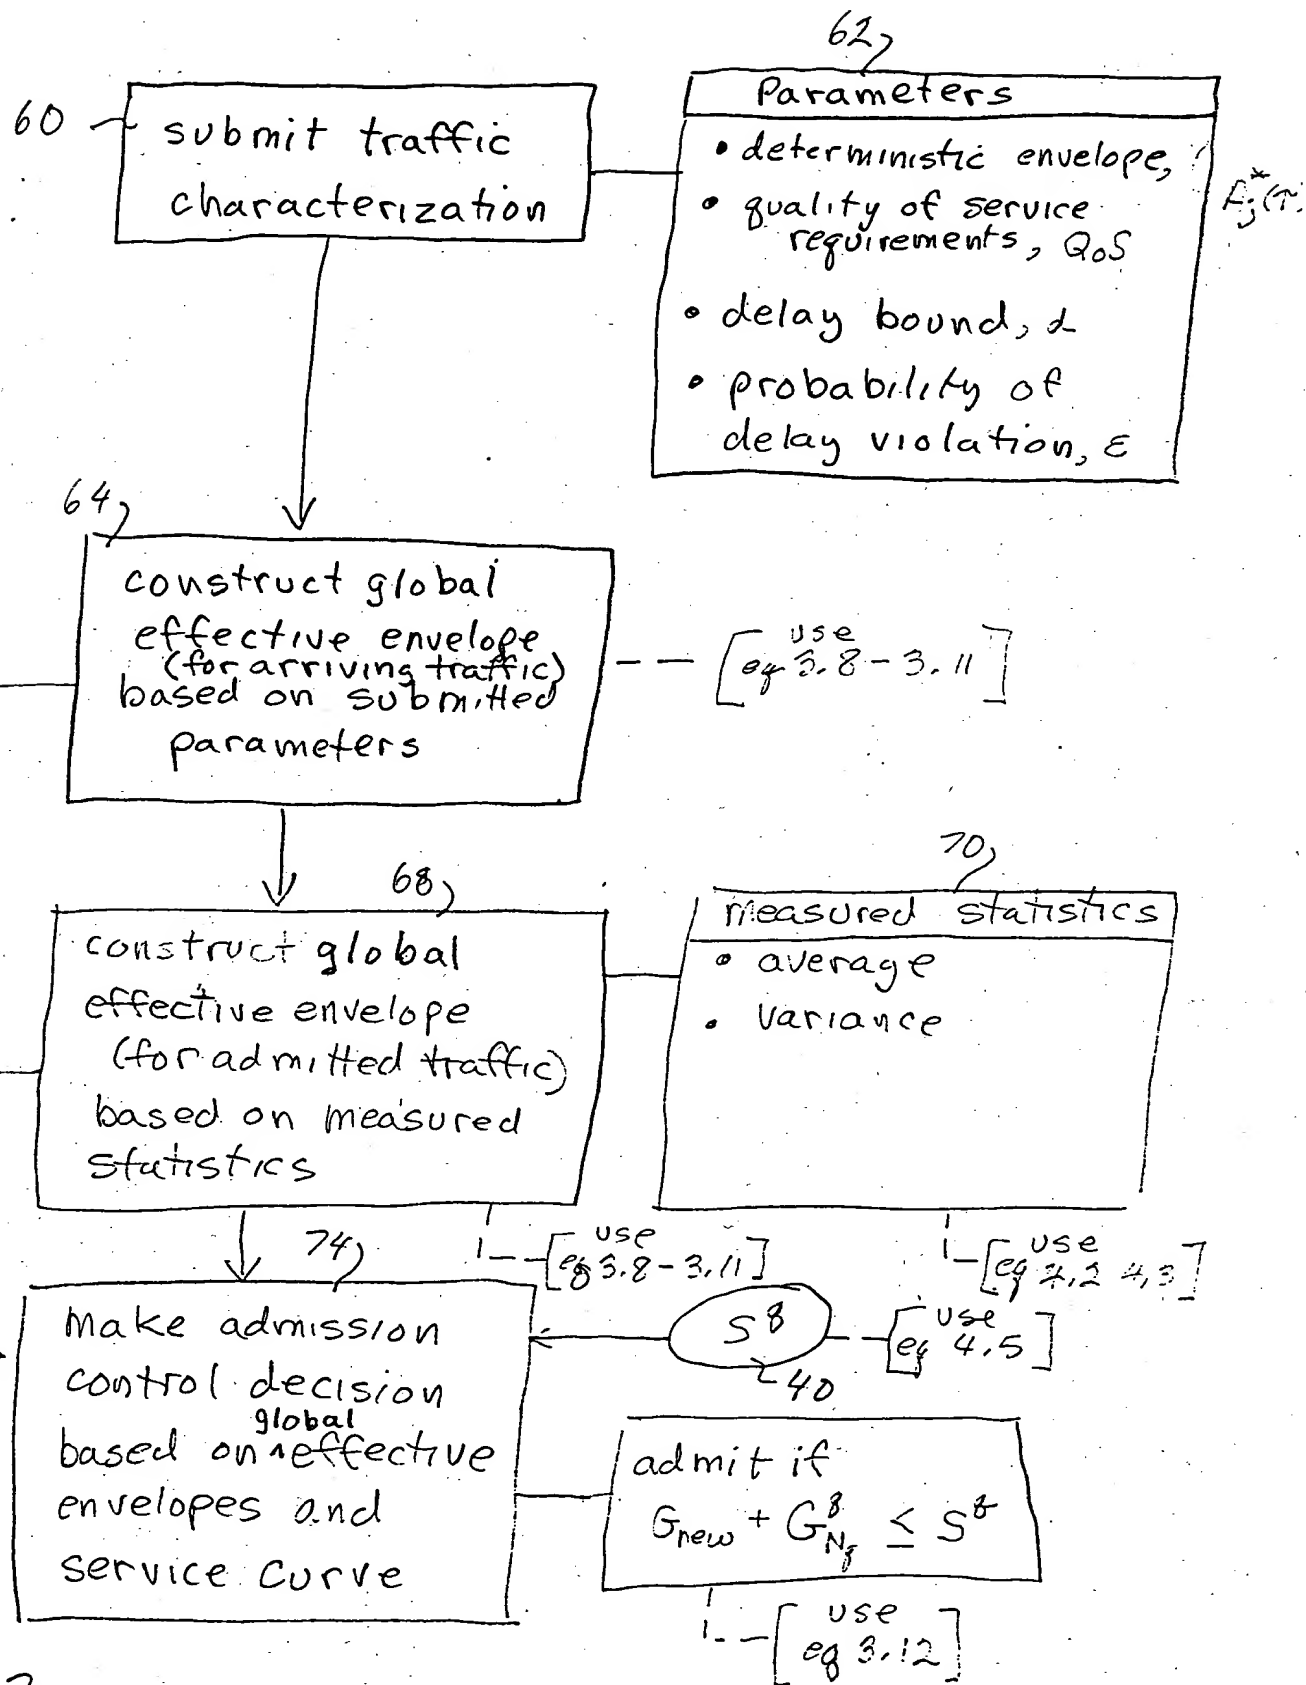 62
60
submit traffic
characterization
Parameters
• deterministic envelope,
• quality of service
requirements, QoS
• delay bound, d
• probability of
delay violation, ε
64
construct global
effective envelope
(for arriving traffic)
based on submitted
parameters
use
eq 3.8 - 3.11
68
construct global
effective envelope
(for admitted traffic)
based on measured
statistics
70
measured statistics
• average
• variance
use
eq 3.8 - 3.11
use
eq 4.2 4.3
74
make admission
control decision
global
based on ^ effective
envelopes and
service curve
S^q
40
use
eq 4.5
admit if
G_new + G^q_Nq ≤ S^q
use
eq 3.12